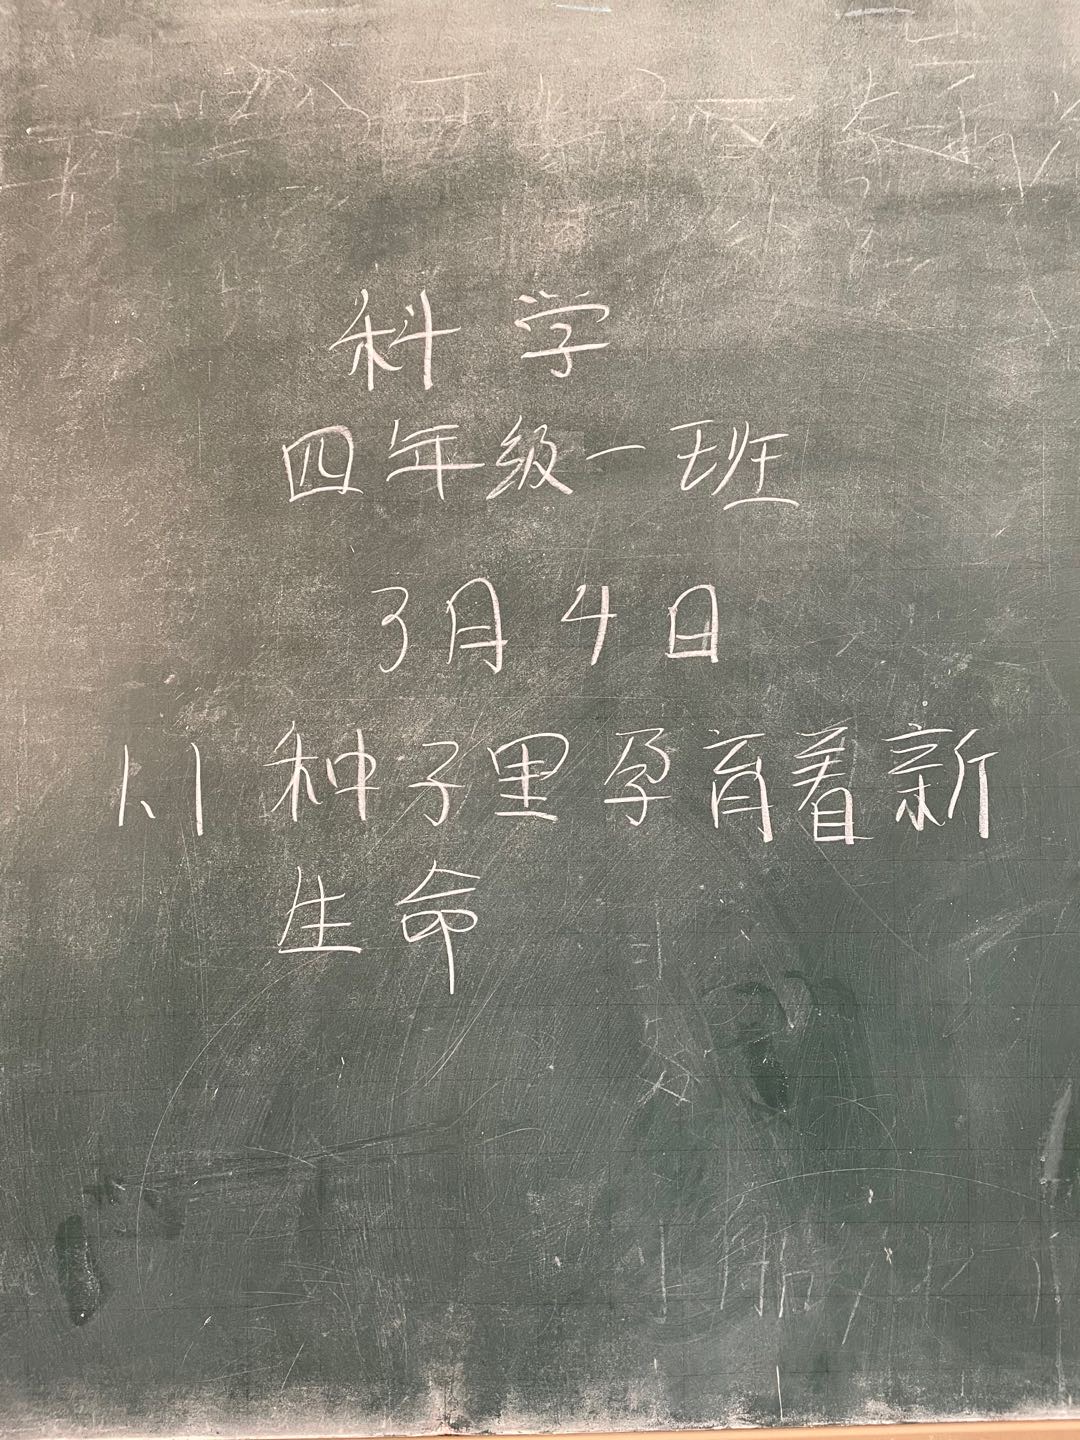 科学
四年级一班
3月4日
1.1 种子里孕育着新
生命